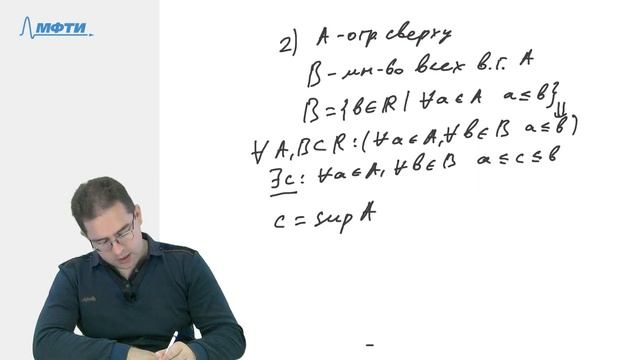 МФТИ
2) A-огр сверху
B-мн-во всех в.г. A
B={b∈ℝ| ∀a∈A a≤b}
∀A,B⊂ℝ:(∀a∈A,∀b∈B a≤b) ⇓
∃c: ∀a∈A, ∀b∈B a≤c≤b
c=sup A